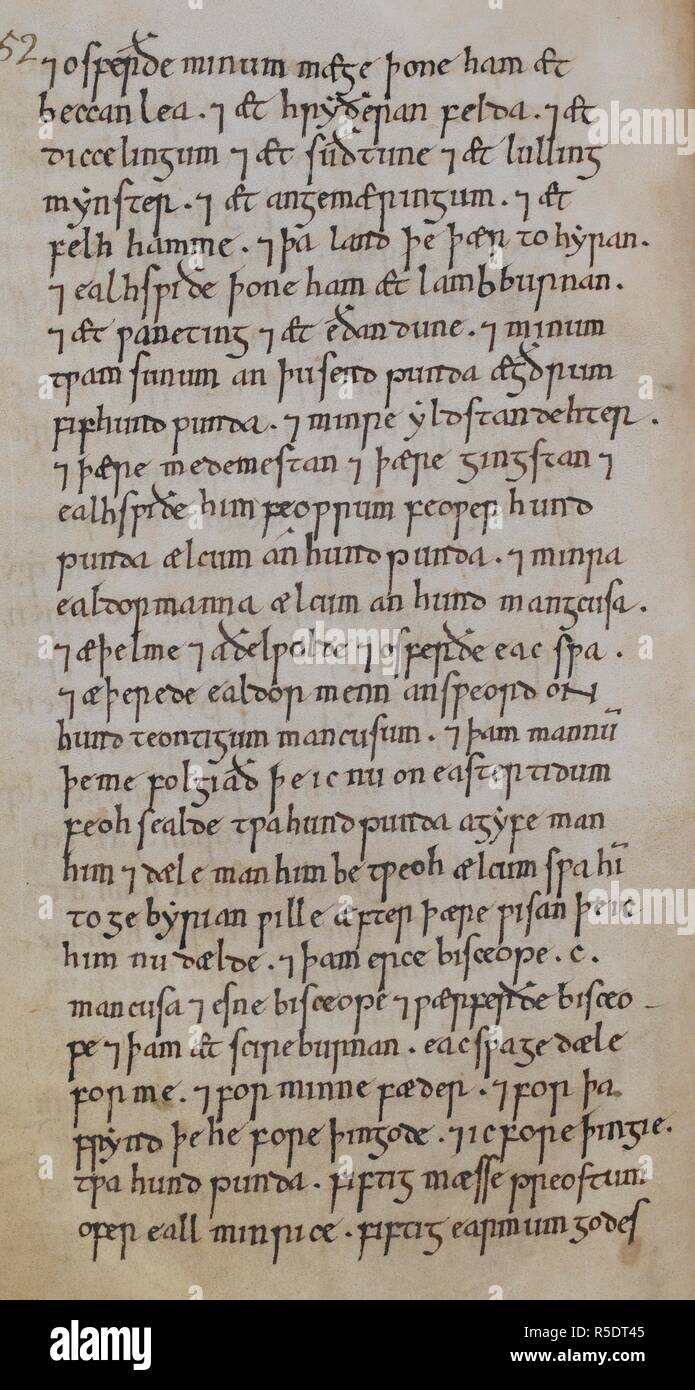 52
⁊ osferðe minum mæge þone ham æt
beccanlea . ⁊ æt hryðeran felda . ⁊ æt
diccelingum ⁊ æt suðtune ⁊ æt lulling
mynster . ⁊ æt angemæringum . ⁊ æt
felhhamme . ⁊ þa land þe þær to hyran .
⁊ ealhswiðe þone ham æt lambburnan .
⁊ æt waneting ⁊ æt eðandune . ⁊ minum
twam sunum an þusend punda ægðrum
fifhund punda . ⁊ minre yldstan dehter .
⁊ þære medemestan ⁊ þære gingstan ⁊
ealhswiðe him feowrum feower hund
punda ælcum an hund punda . ⁊ minra
ealdormanna ælcum an hund mangcusa .
⁊ æþelme ⁊ aðelwolde ⁊ osferðe eac swa .
⁊ æþerede ealdormenn an sweord on
hundteontigum mancusum . ⁊ þam mannū
þe me folgiað þe ic nu on eastertidum
feoh sealde twa hund punda agyfe man
him ⁊ dæle man him betweoh ælcum swa hī
to gebyrian wille æfter þære wisan þe ic
him nu dælde . ⁊ þam ercebisceope . c .
mancusa ⁊ esne bisceope ⁊ wærferðe bisceo
pe ⁊ þam æt scireburnan . eac swa gedæle
for me . ⁊ for minne fæder . ⁊ for þa
frynd þe he fore þingode . ⁊ ic fore þingie .
twa hund punda . fiftig mæssepreostum
ofer eall min rice . fiftig earmum godes
alamy
Image ID: R5DT45
www.alamy.com